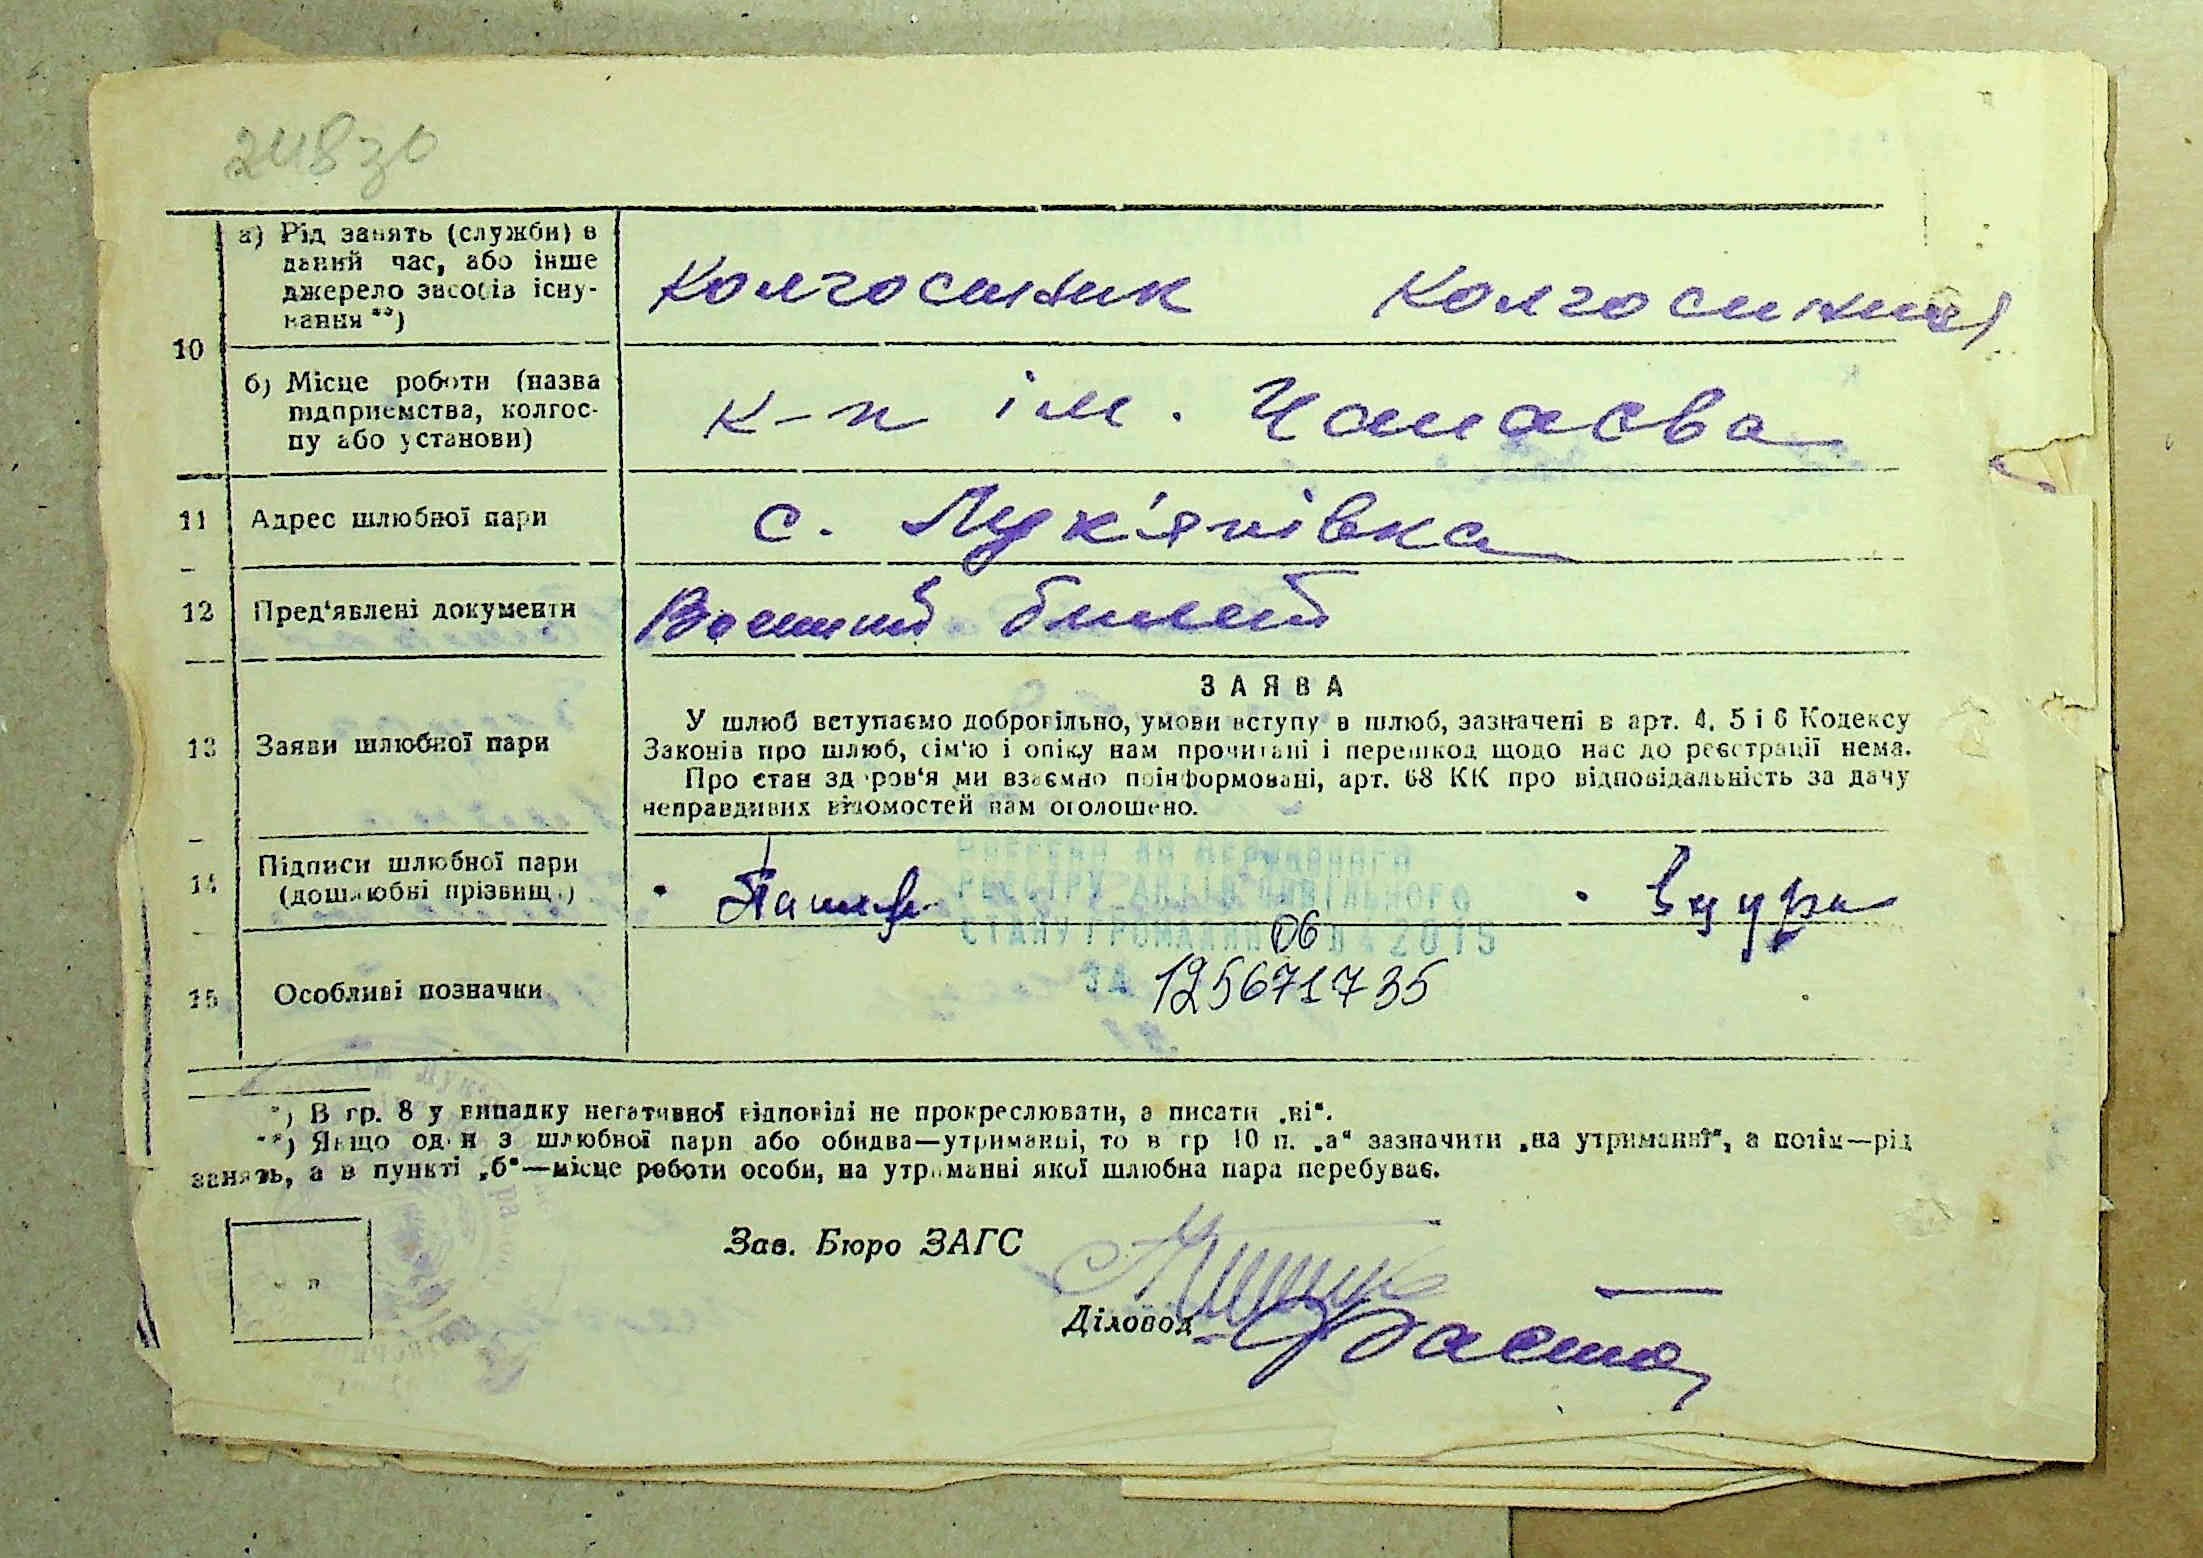 248зв
10
а) Рід занять (служби) в
даний час, або інше
джерело засобів існу-
вання **)
Колгоспник Колгоспниця
б) Місце роботи (назва
підприємства, колгос-
пу або установи)
к-п ім. Чапаєва
11 Адрес шлюбної пари
с. Лук'янівка
12 Пред'явлені документи
Воєнний билет
13 Заяви шлюбної пари
ЗАЯВА
У шлюб вступаємо добровільно, умови вступу в шлюб, зазначені в арт. 4, 5 і 6 Кодексу
Законів про шлюб, сім'ю і опіку нам прочитані і перешкод щодо нас до реєстрації нема.
Про стан здоров'я ми взаємно поінформовані, арт. 68 КК про відповідальність за дачу
неправдивих відомостей нам оголошено.
14 Підписи шлюбної пари
(дошлюбні прізвищ.)
ВНЕСЕНО ДО ДЕРЖАВНОГО
РЕЄСТРУ АКТІВ ЦИВІЛЬНОГО
СТАНУ ГРОМАДЯН 06 2015
ЗА 125671735
15 Особливі позначки
*) В гр. 8 у випадку негативної відповіді не прокреслювати, а писати „ні“.
**) Якщо один з шлюбної пари або обидва—утриманці, то в гр 10 п. „а“ зазначити „на утриманні“, а потім—рід
занять, а в пункті „б“—місце роботи особи, на утриманні якої шлюбна пара перебуває.
Зав. Бюро ЗАГС
Діловод